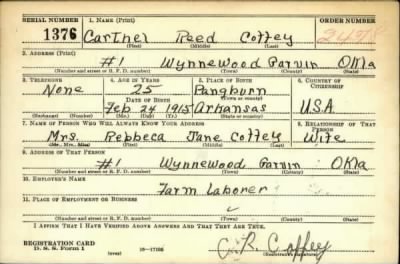 SERIAL NUMBER 1. NAME (Print) ORDER NUMBER
1376 Carthel Reed Coffey 2478
(First) (Middle) (Last)
2. ADDRESS (Print)
#1 Wynnewood Garvin Okla
(Number and street or R. F. D. number) (Town) (County) (State)
3. TELEPHONE 4. AGE IN YEARS 5. PLACE OF BIRTH 6. COUNTRY OF CITIZENSHIP
None 25 Pangburn
DATE OF BIRTH (Town or county)
Feb 24 1915 Arkansas USA
(Exchange) (Number) (Mo.) (Day) (Yr.) (State or country)
7. NAME OF PERSON WHO WILL ALWAYS KNOW YOUR ADDRESS 8. RELATIONSHIP OF THAT PERSON
Mrs. Rebbeca Jane Coffey Wife
(Mr., Mrs., Miss) (First) (Middle) (Last)
9. ADDRESS OF THAT PERSON
#1 Wynnewood Garvin Okla
(Number and street or R. F. D. number) (Town) (County) (State)
10. EMPLOYER'S NAME
Farm Laborer
11. PLACE OF EMPLOYMENT OR BUSINESS
(Number and street or R. F. D. number) (Town) (County) (State)
I AFFIRM THAT I HAVE VERIFIED ABOVE ANSWERS AND THAT THEY ARE TRUE.
REGISTRATION CARD
D. S. S. Form 1 (over) C. R. Coffey
(Registrant's signature)